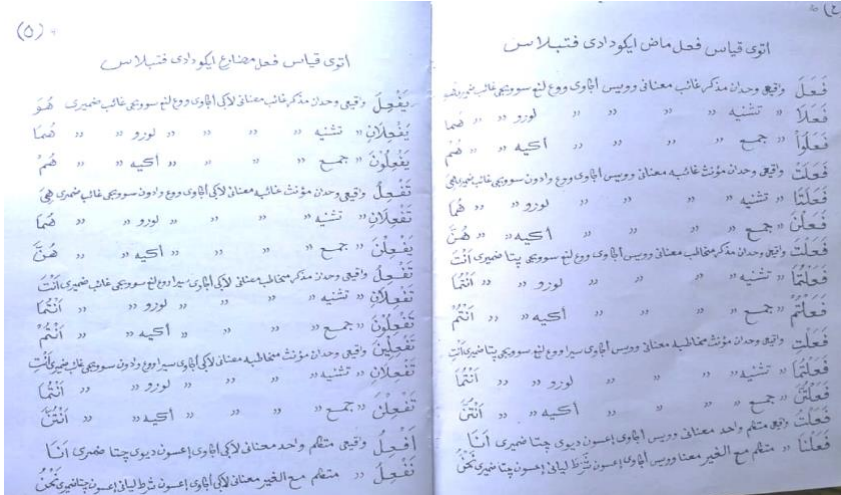 (٤
اتوى قياس فعل ماض ايكو دادى فتبلاس
فَعَلَ واقيعى وحدان مذكر غائب معنانى وويس أڮاوى ووع لنع سوويجى غائب ضميرى هو
فَعَلَا » تشنيه » » » » لورو » » هُمَا
فَعَلُوْا » جمع » » » » أكيه » » هُمْ
فَعَلَتْ واقيعى وحدان مؤنث غائبه معنانى وويس أڮاوى ووع وادون سوويجى غائب ضميرى هِيَ
فَعَلَتَا » تشنيه » » » » لورو » » هُمَا
فَعَلْنَ » جمع » » » » أكيه » » هُنَّ
فَعَلْتَ واقيعى وحدان مذكر مخاطب معنانى وويس أڮاوى ووع لنع سوويجى چتا ضميرى أَنْتَ
فَعَلْتُمَا » تشنيه » » » » لورو » » أَنْتُمَا
فَعَلْتُمْ » جمع » » » » أكيه » » أَنْتُمْ
فَعَلْتِ واقيعى وحدان مؤنث مخاطبه معنانى وويس أڮاوى سيرا ووع لنع سوويجى چتا ضميرى أَنْتِ
فَعَلْتُمَا » تشنيه » » » » لورو » » أَنْتُمَا
فَعَلْتُنَّ » جمع » » » » أكيه » » أَنْتُنَّ
فَعَلْتُ واقيعى متكلم واحد معنانى وويس أڮاوى إعسون ديوى چتا ضميرى أَنَا
فَعَلْنَا » متكلم مع الغير معنا وويس أڮاوى إعسون ليانى إعسون چتا ضميرى نَحْنُ
(٥)
اتوى قياس فعل مضارع ايكو دادى فتبلاس
يَفْعِلُ واقيعى وحدان مذكر غائب معنانى لاڮى أڮاوى ووع لنع سوويجى غائب ضميرى هُوَ
يَفْعِلَانِ » تشنيه » » » » لورو » » هُمَا
يَفْعِلُوْنَ » جمع » » » » أكيه » » هُمْ
تَفْعِلُ واقيعى وحدان مؤنث غائبه معنانى لاڮى أڮاوى ووع وادون سوويجى غائب ضميرى هِيَ
تَفْعِلَانِ » تشنيه » » » » لورو » » هُمَا
يَفْعِلْنَ » جمع » » » » أكيه » » هُنَّ
تَفْعِلُ واقيعى وحدان مذكر مخاطب معنانى لاڮى أڮاوى سيرا ووع لنع سوويجى غائب ضميرى أَنْتَ
تَفْعِلَانِ » تشنيه » » » » لورو » » أَنْتُمَا
تَفْعِلُوْنَ » جمع » » » » أكيه » » أَنْتُمْ
تَفْعِلِيْنَ واقيعى وحدان مؤنث مخاطبه معنانى لاڮى أڮاوى سيرا ووع وادون سوويجى غائب ضميرى أَنْتِ
تَفْعِلَانِ » تشنيه » » » » لورو » » أَنْتُمَا
تَفْعِلْنَ » جمع » » » » أكيه » » أَنْتُنَّ
أَفْعِلُ واقيعى متكلم واحد معنانى لاڮى أڮاوى إعسون ديوى چتا ضميرى أَنَا
نَفْعِلُ » متكلم مع الغير معنانى لاڮى أڮاوى إعسون ليانى إعسون چتا ضميرى نَحْنُ